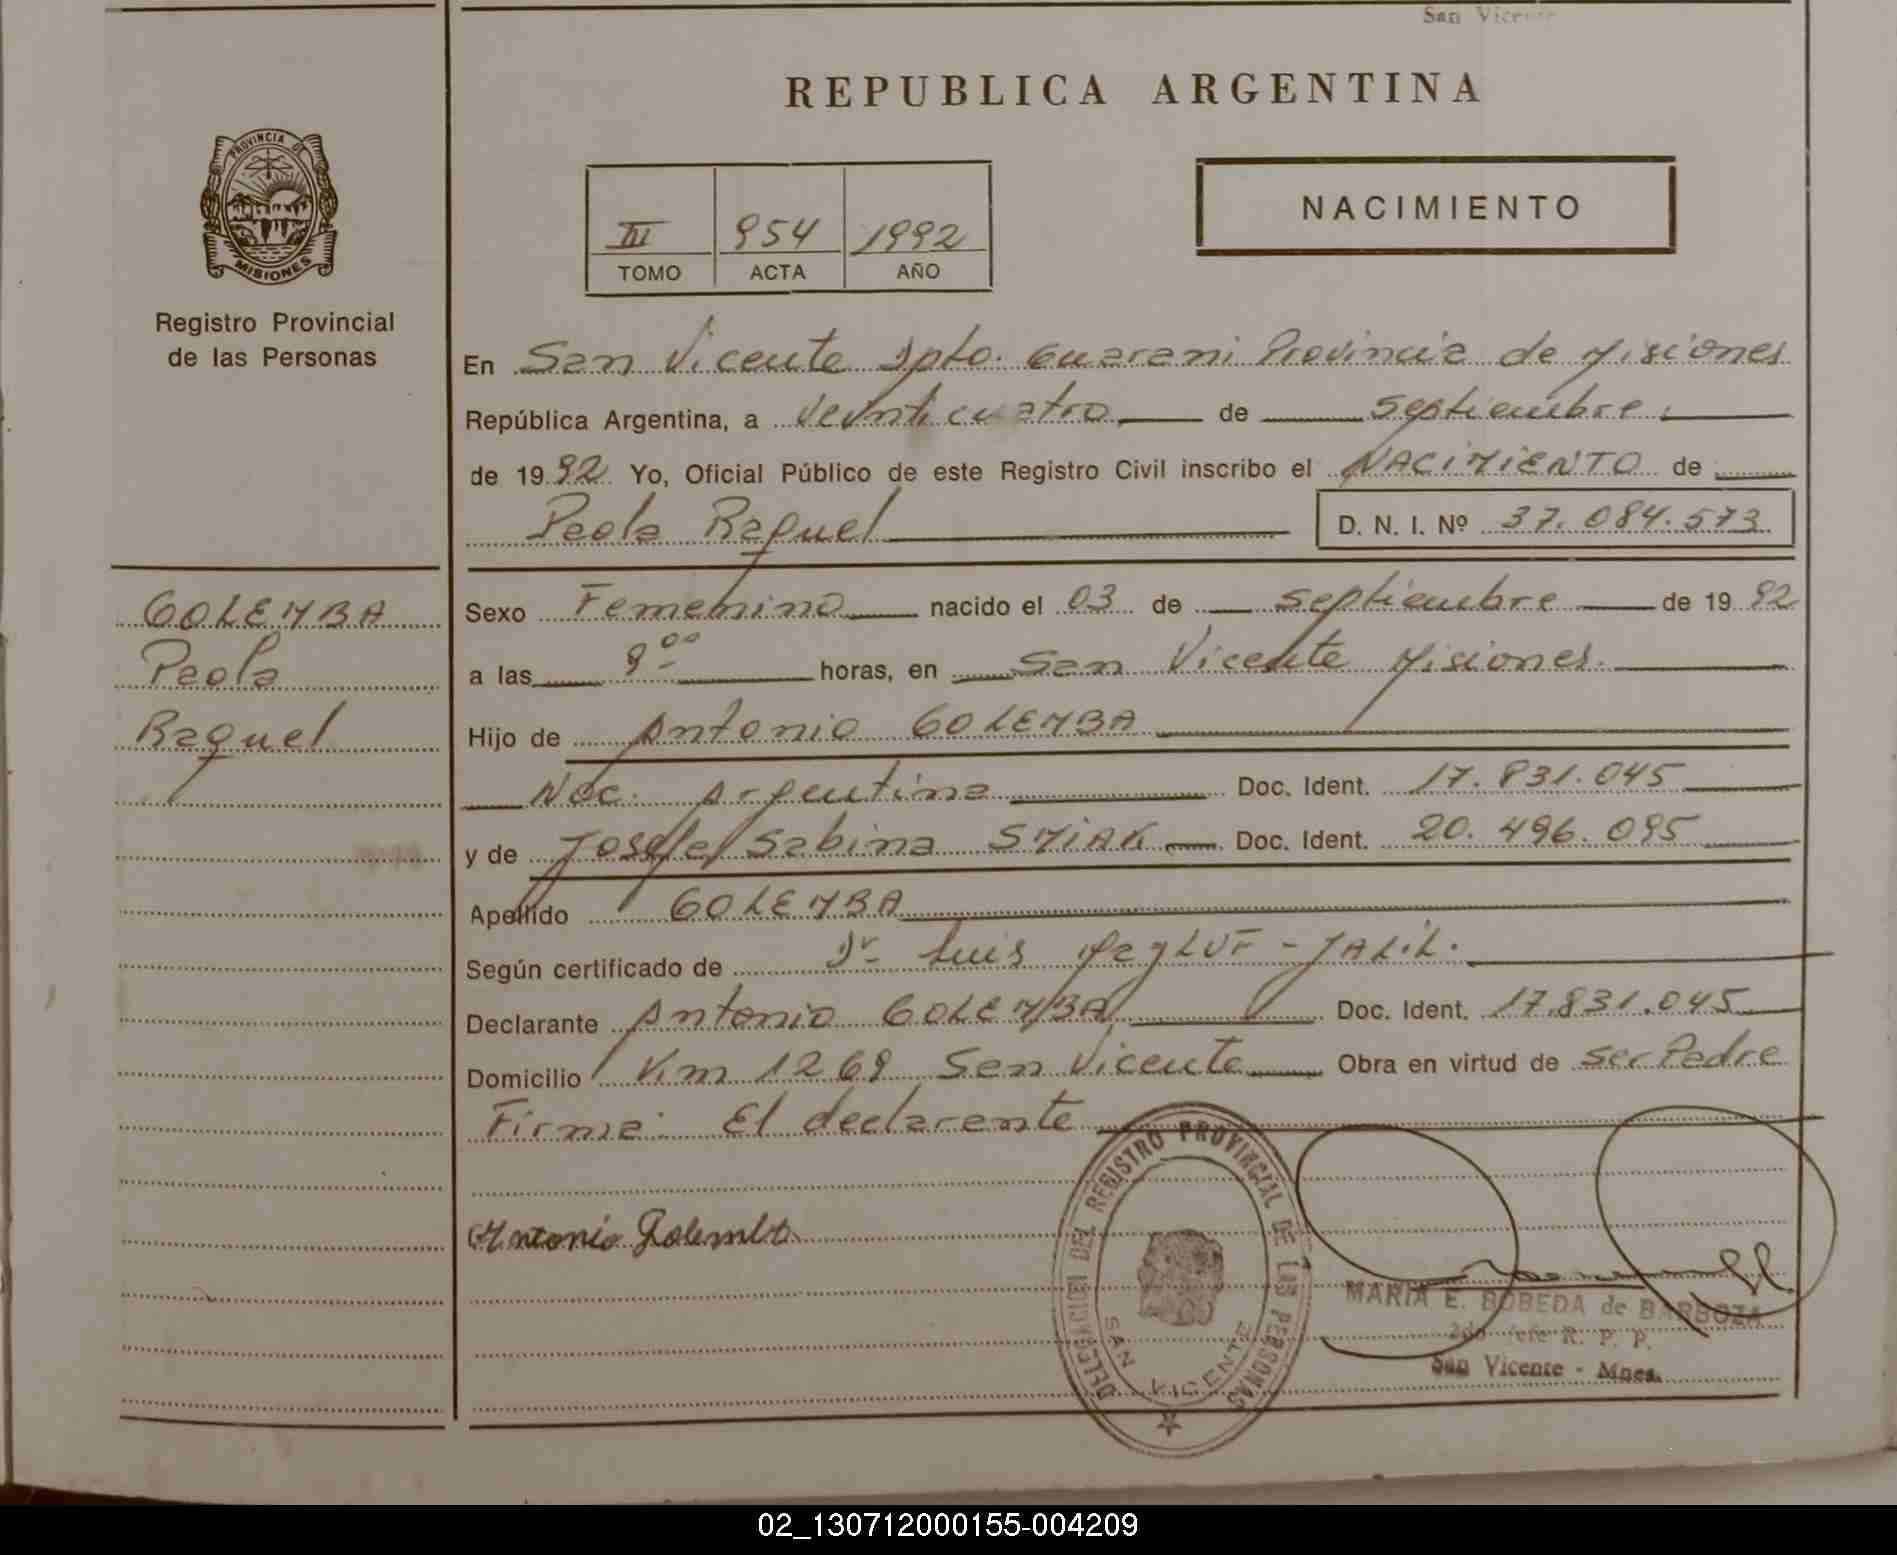 San Vicente
REPUBLICA ARGENTINA
PROVINCIA DE
MISIONES
Registro Provincial
de las Personas
III 954 1992
TOMO ACTA AÑO
NACIMIENTO
En San Vicente Dpto. Guarani Provincia de Misiones
República Argentina, a veinticuatro de septiembre
de 1992 Yo, Oficial Público de este Registro Civil inscribo el NACIMIENTO de
Paola Raquel D. N. I. Nº 37.084.573
GOLEMBA
Paola
Raquel
Sexo Femenino nacido el 03 de septiembre de 1992
a las horas, en San Vicente Misiones.
Hijo de Antonio GOLEMBA
Nac. Argentina Doc. Ident. 17.831.045
y de Josefa Sabina SMIAK Doc. Ident. 20.496.095
Apellido GOLEMBA
Según certificado de Dr Luis JALIL.
Declarante Antonio GOLEMBA Doc. Ident. 17.831.045
Domicilio Km 1269 San Vicente Obra en virtud de ser Padre
Firma: El declarante
Antonio Golemba
DELEGACION DEL REGISTRO PROVINCIAL DE LAS PERSONAS
SAN VICENTE
MARIA E. BOBEDA de BARBOZA
2do Jefe R. P. P.
San Vicente - Mnes.
02_130712000155-004209